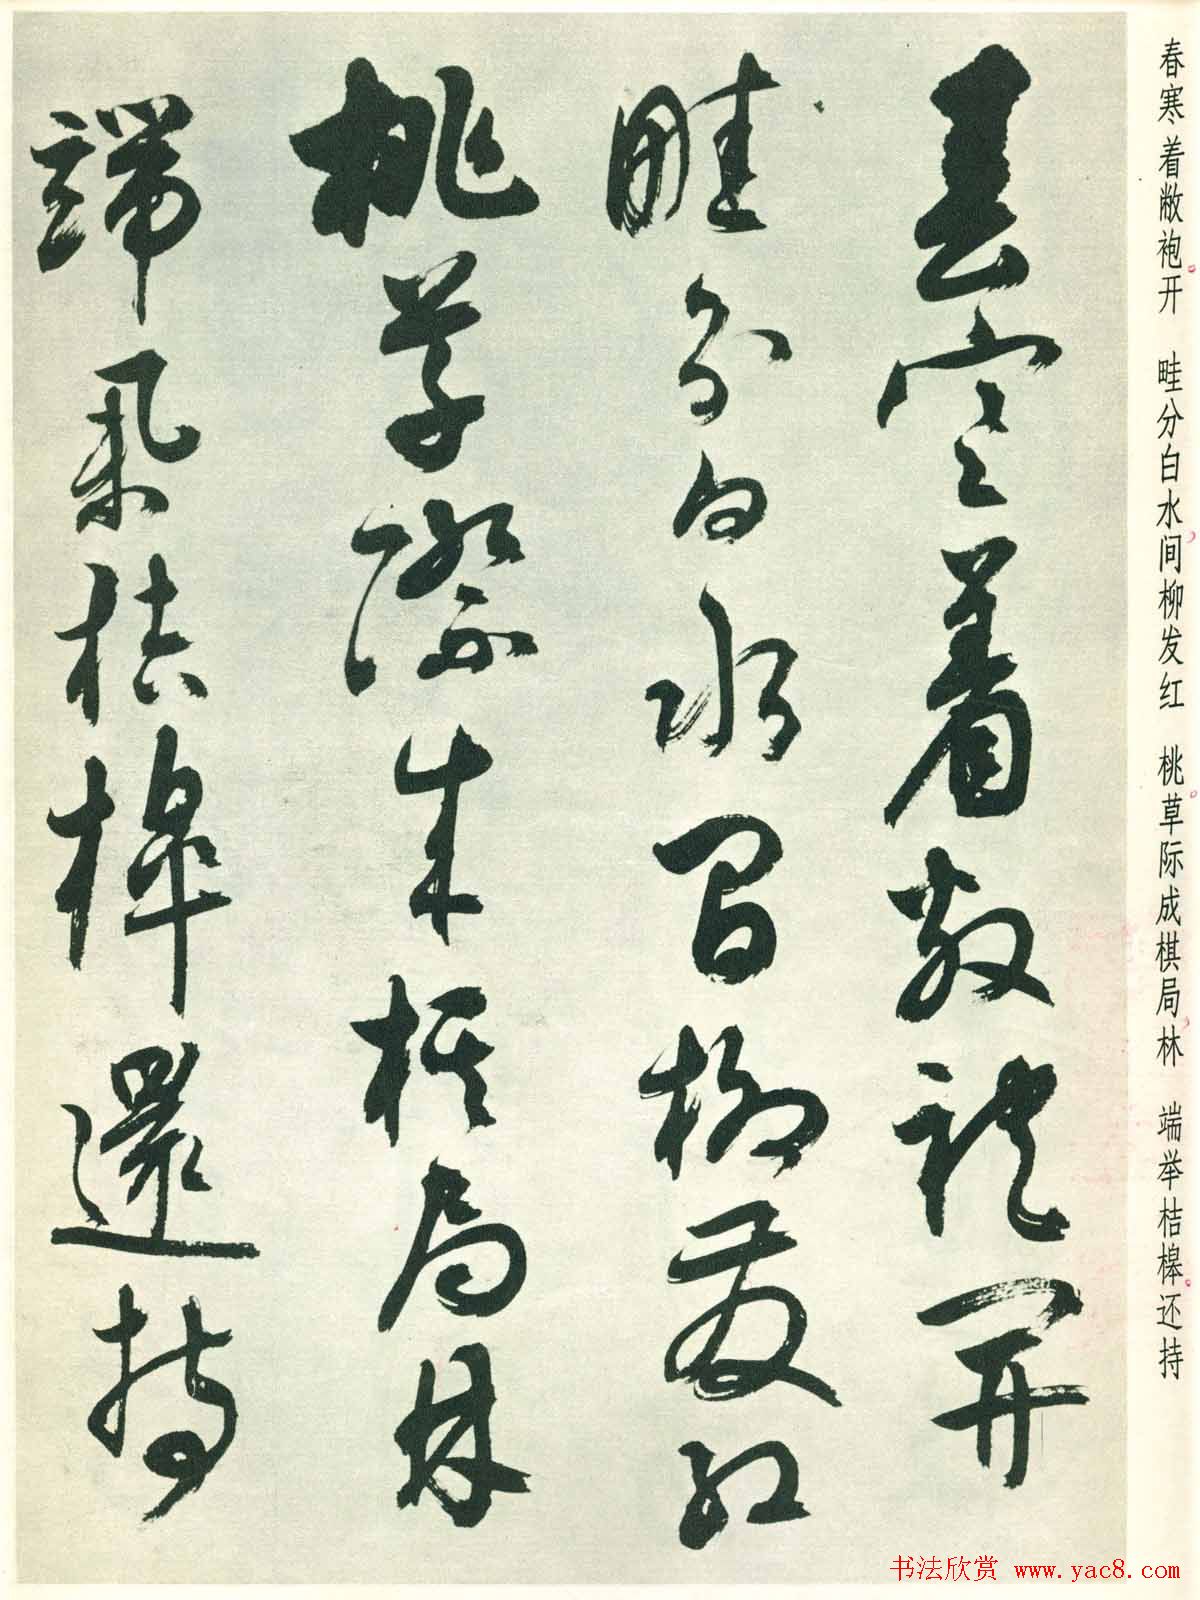 春寒着敝袍开 畦分白水间柳发红 桃草际成棋局林 端举桔槔还持
春寒着敝袍開
畦分白水間柳發紅
桃草際成棋局林
端舉桔槔還持
书法欣赏 www.yac8.com